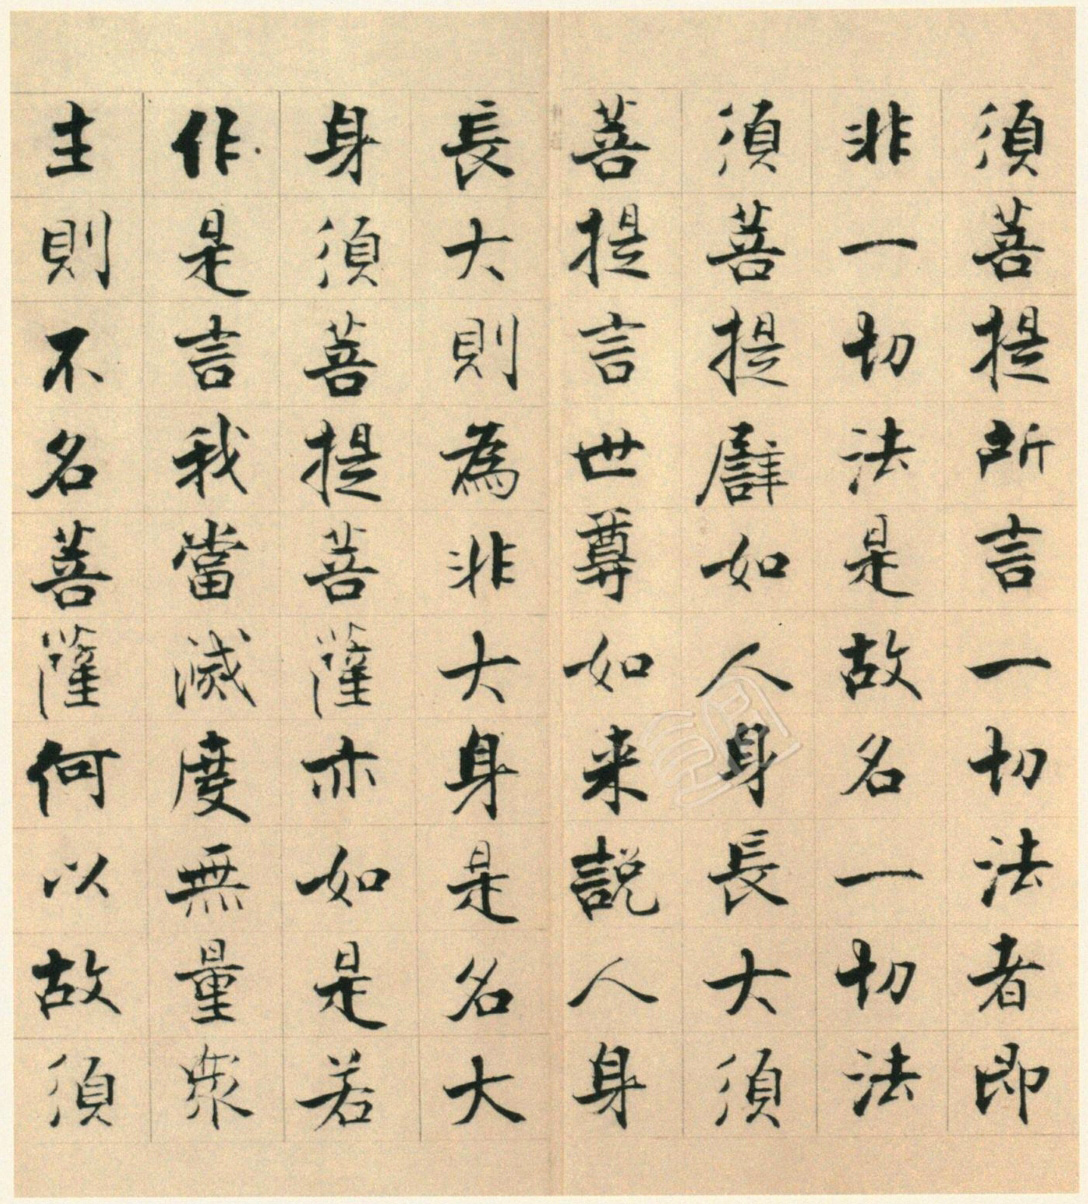 須菩提所言一切法者即
非一切法是故名一切法
須菩提譬如人身長大須
菩提言世尊如来説人身
長大則為非大身是名大
身須菩提菩薩亦如是若
作是言我當滅度無量衆
主則不名菩薩何以故須